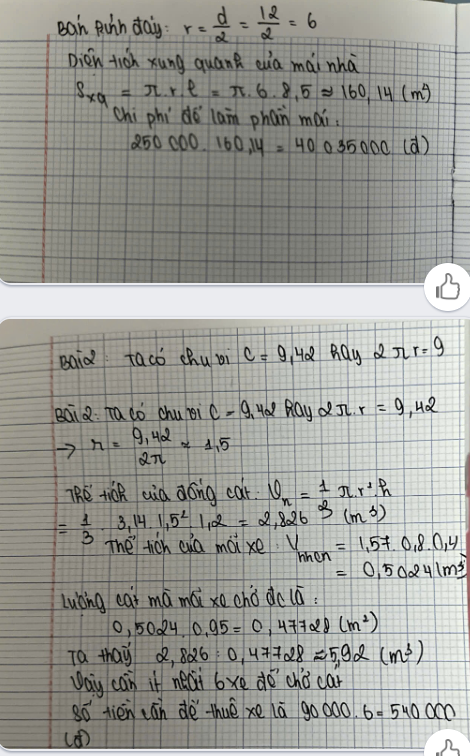 Bán kính đáy: r = d/2 = 12/2 = 6
Diện tích xung quanh của mái nhà
Sxq = π.r.l = π.6.8,5 ≈ 160,14 (m²)
Chi phí để làm phần mái:
250 000. 160,14 = 40 035000 (đ)
Bài 2: Ta có chu vi C = 9,42 hay 2πr = 9
Bài 2. Ta có chu vi C = 9,42 hay 2π.r = 9,42
→ r = 9,42/2π ≈ 1,5
Thể tích của đống cát: Vn = 1/3 π.r².h
= 1/3 . 3,14. 1,5². 1,2 = 2,826 (m³)
Thể tích của mỗi xe: Vhhcn = 1,57. 0,8. 0,4
= 0,5024 (m³)
Lượng cát mà mỗi xe chở đc là:
0,5024. 0,95 = 0,47728 (m³)
Ta thấy 2,826 : 0,47728 ≈ 5,92 (m³)
Vậy cần ít nhất 6 xe để chở cát
Số tiền cần để thuê xe là 90000. 6 = 540 000
(đ)